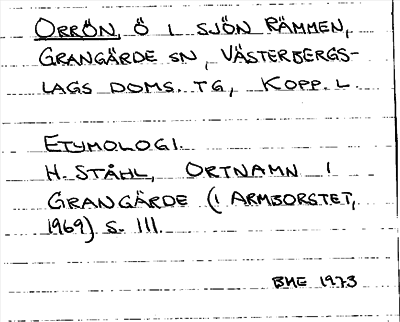 ORRÖN, Ö I SJÖN RÄMMEN,
GRANGÄRDE SN, VÄSTERBERGS-
LAGS DOMS. TG, KOPP. L.
ETYMOLOGI.
H. STÅHL, ORTNAMN I
GRANGÄRDE (I ARMBORSTET,
1969) S. 111.
BME 1973